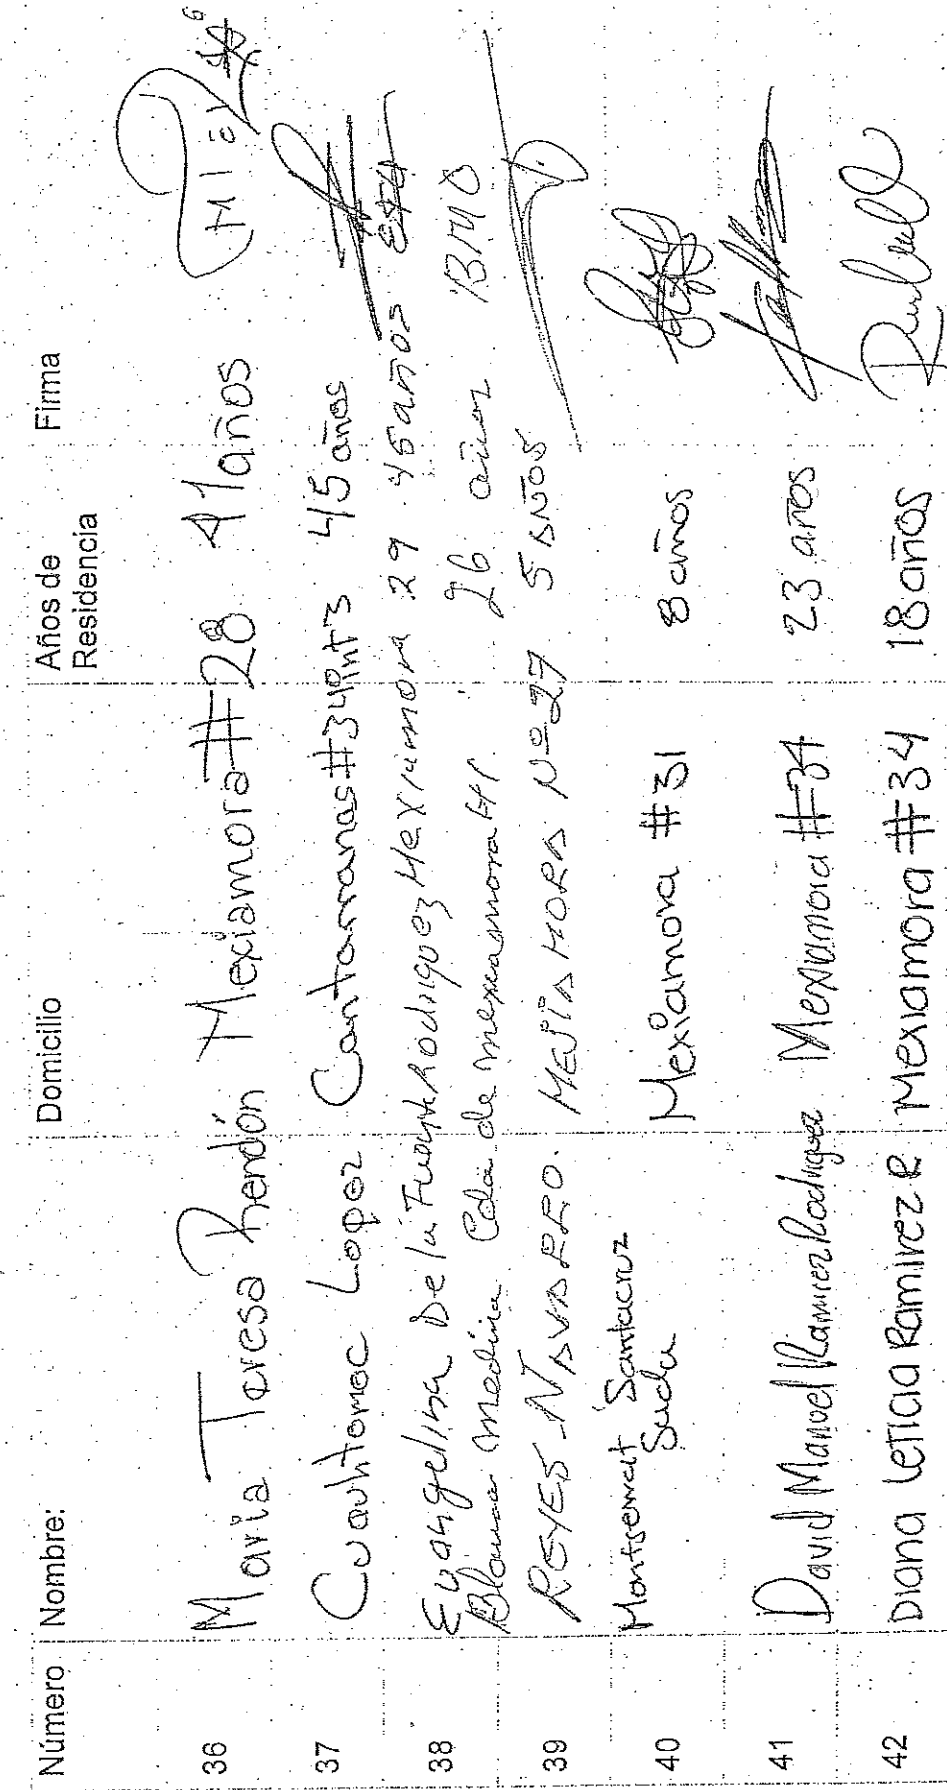 Número Nombre: Domicilio Años de Residencia Firma
36 Maria Teresa Rendón Mexiamora #28 41años
37 Cuauhtemoc Lopez Cantarranas #34 int 3 45 años
38 Evangelina De la Fuente Rodriguez Mexiamora 29 45 años
Blanca Medina de mexiamora 26 años BMO
39 REYES NAVARRO. MEJIA MORA Nº 27 5 AÑOS
40 Montserrat Santacruz Mexiamora #31 8 años
41 David Manuel Ramirez Rodriguez Mexiamora #34 23 años
42 Diana Leticia Ramirez R Mexiamora #34 18 años